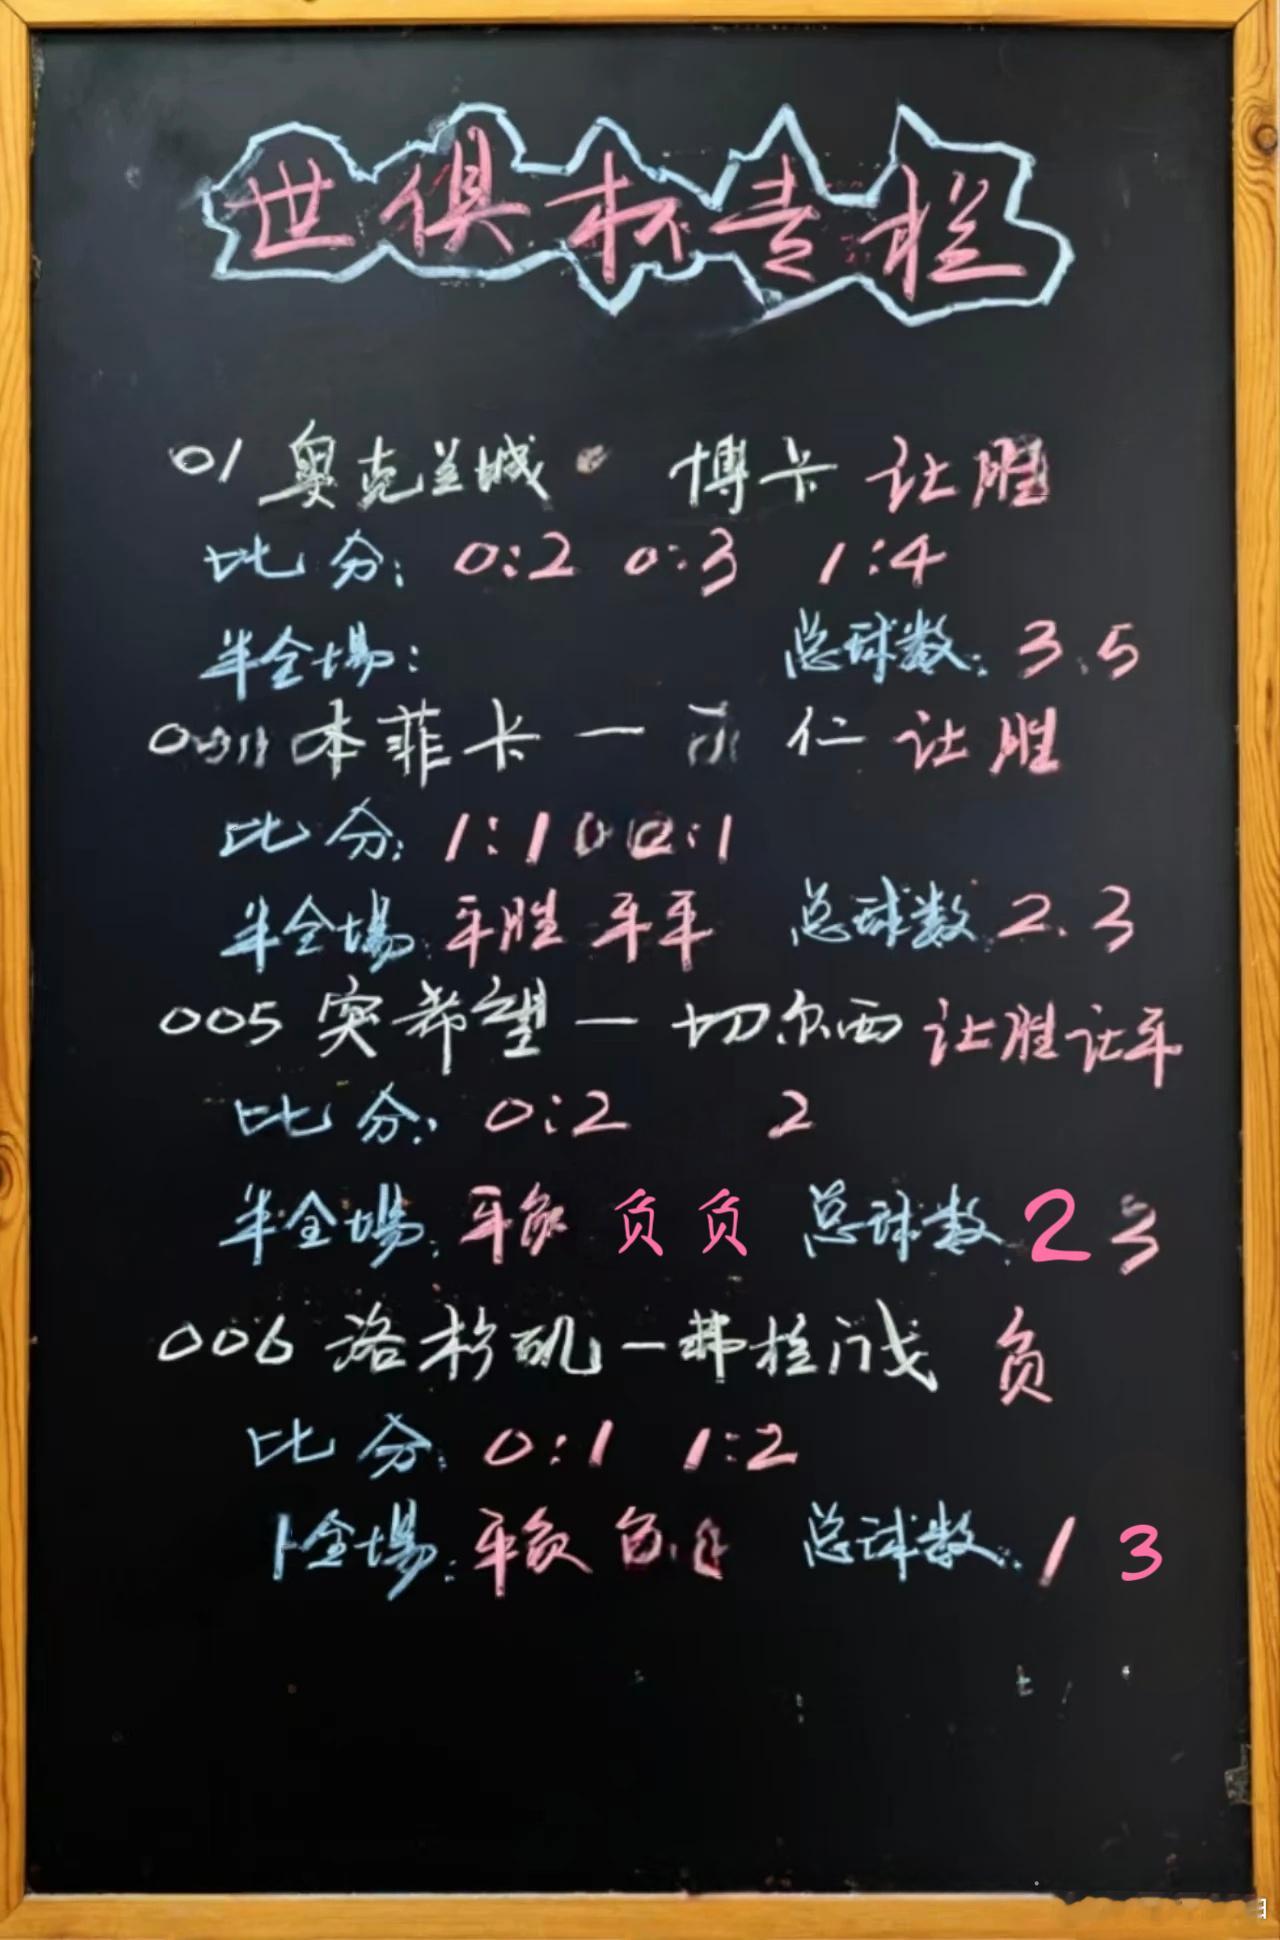 世俱杯专栏
01 奥克兰城 博卡 让胜
比分: 0:2 0:3 1:4
半全場: 总球数: 3.5
本菲卡 一 仁 让胜
比分: 1:1 :1
半全場: 平胜 平平 总球数 2.3
005 突希望 一 切尔西 让胜让平
比分: 0:2 2
半全場: 平负 负负 总球数 2 3
006 洛杉矶 一 弗拉门戈 负
比分: 0:1 1:2
全場: 平负 总球数: 1 3